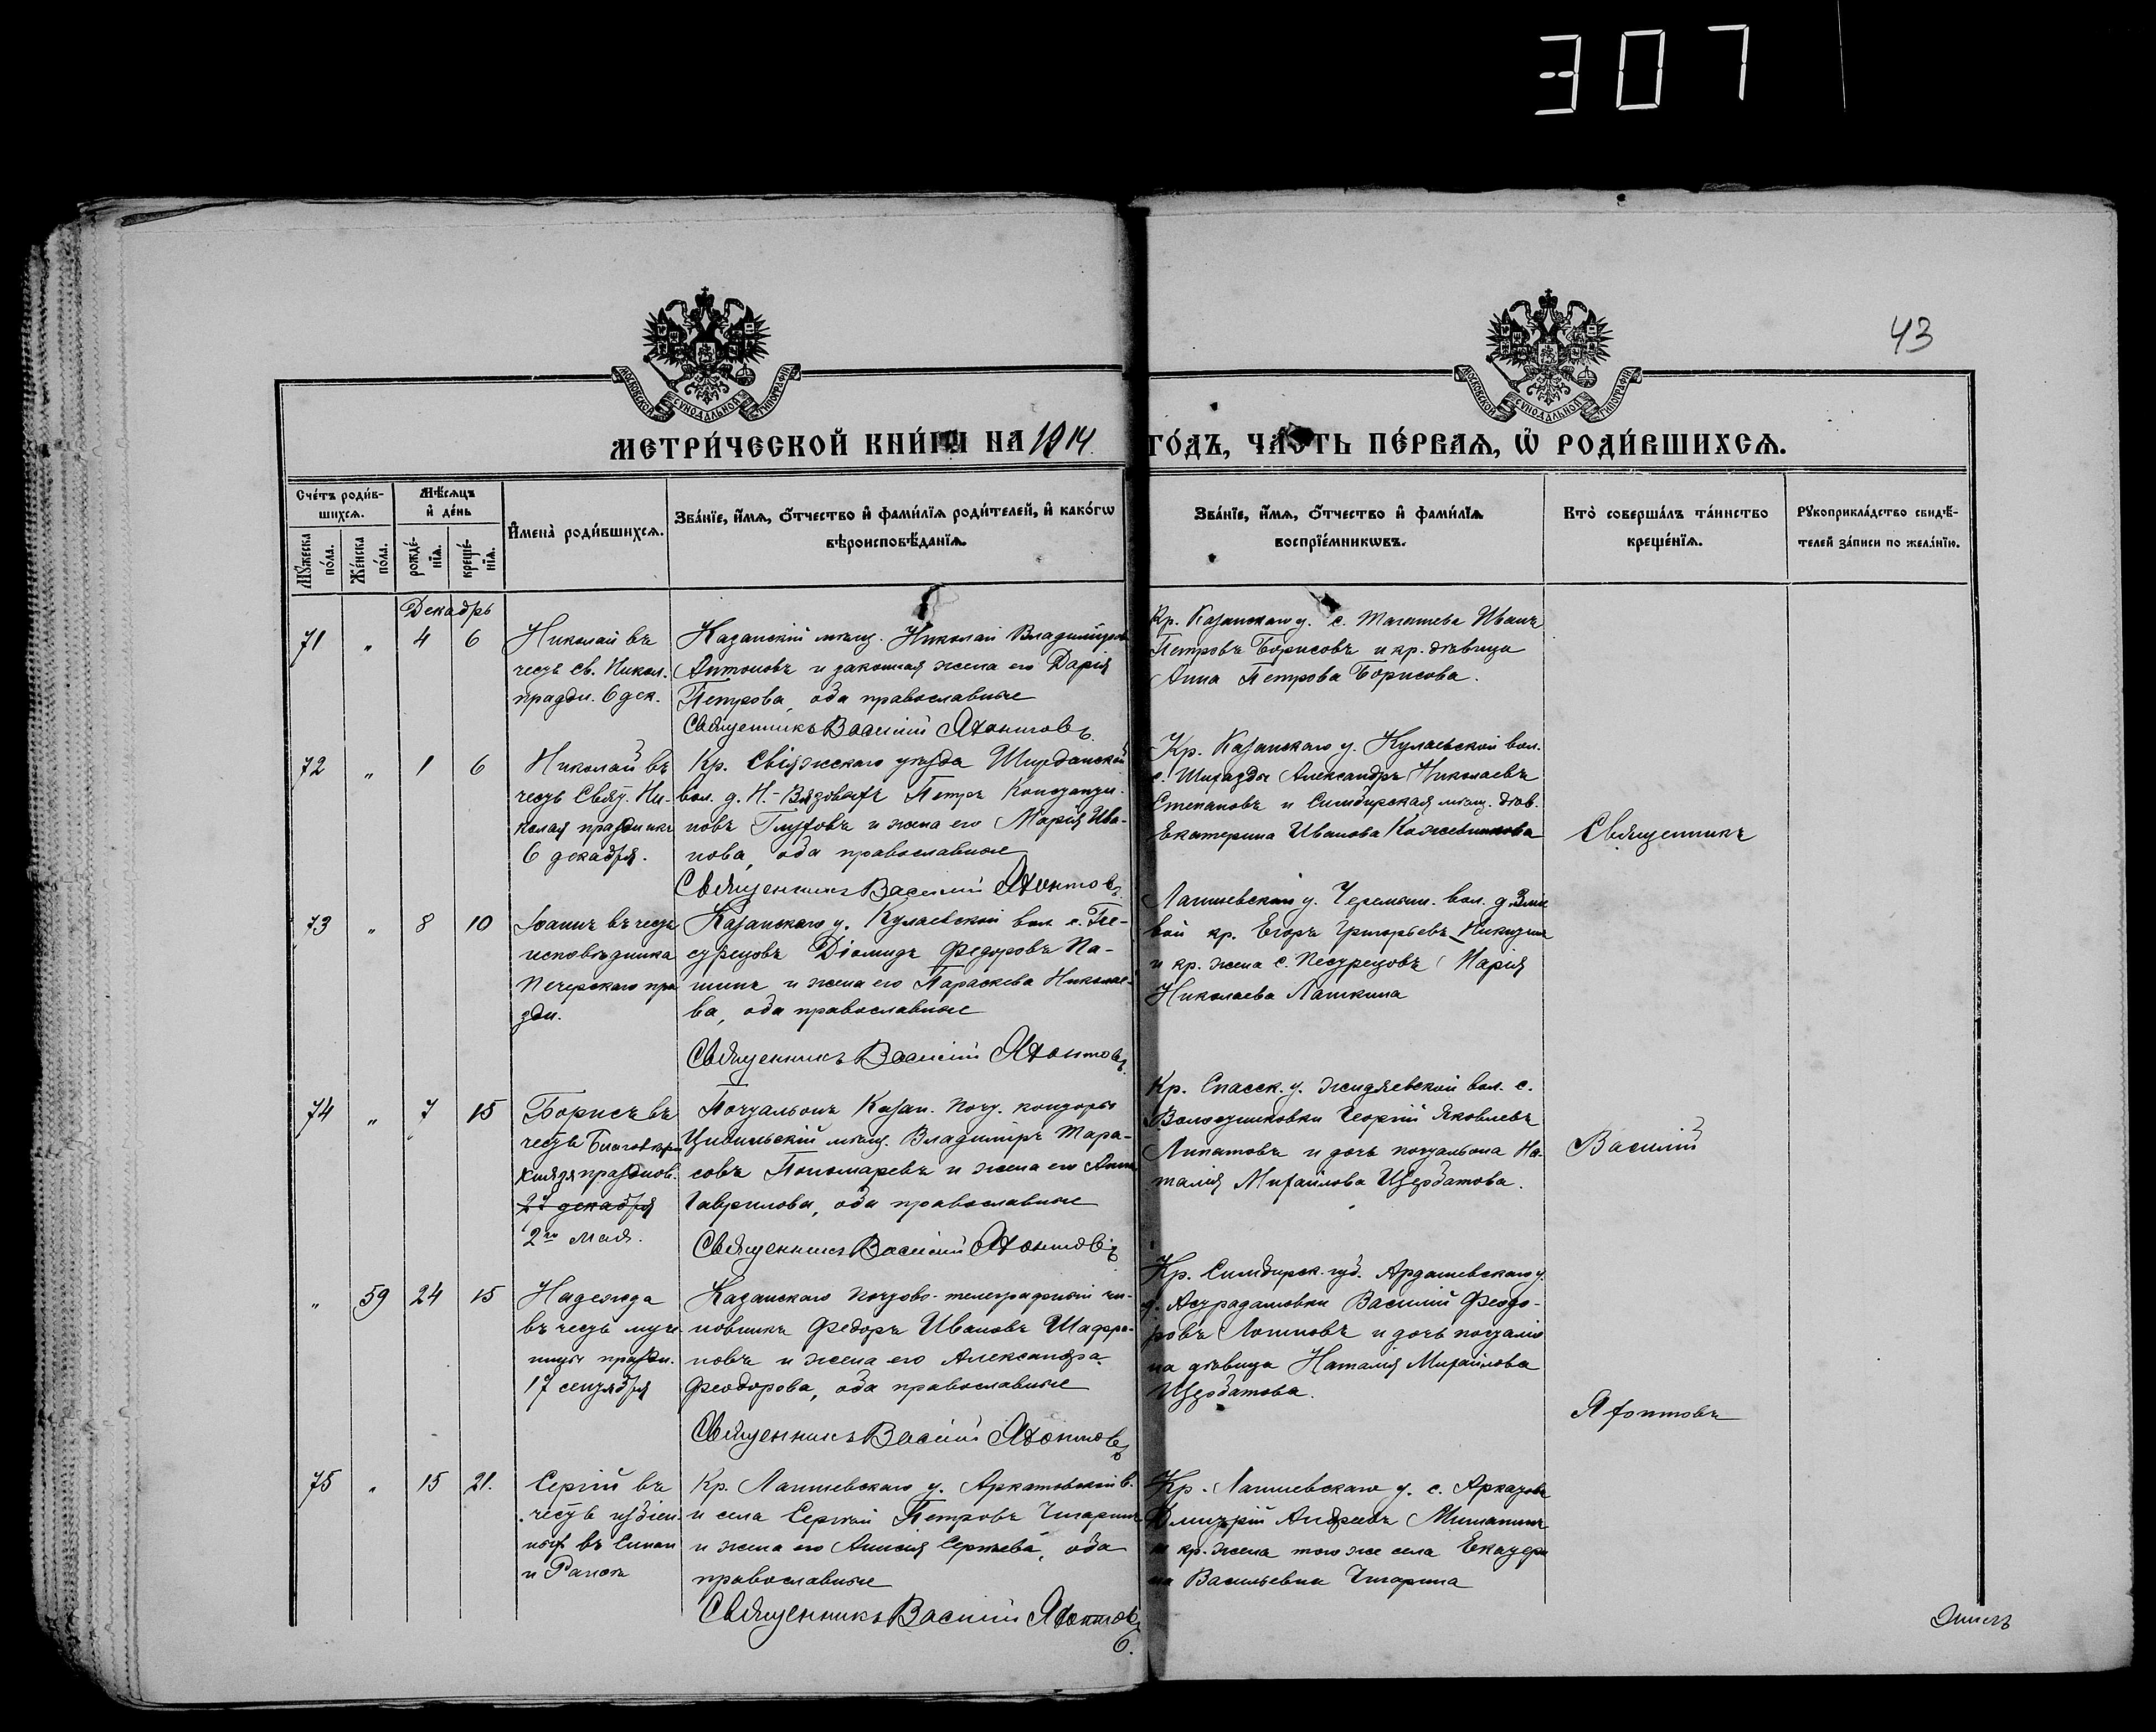 307
43
МОСКОВСКОЙ СУНОДАЛЬНОЙ ТИПОГРАФІИ
МОСКОВСКОЙ СУНОДАЛЬНОЙ ТИПОГРАФІИ
МЕТРИ́ЧЕСКОЙ КНИ́ГИ НА 1914. ГО́ДЪ, ЧА́СТЬ ПЕ́РВАѦ, Ѡ РОДИ́ВШИХСѦ.
Сче́тъ роди́в-
шихсѧ.
Мꙋжеска по́ла.
Же́нска по́ла.
Мѣ́сѧцъ и де́нь
рожде́нїѧ.
креще́нїѧ.
И҆мена̀ роди́вшихсѧ.
Зва́нїе, и҆́мѧ, ѻ҆́тчество и҆ фами́лїѧ роди́телей, и҆ како́гѡ
вѣроисповѣ́данїѧ.
Зва́нїе, и҆́мѧ, ѻ҆́тчество и҆ фами́лїѧ
воспрїе́мникѡвъ.
Кто̀ соверша́лъ та́инство
креще́нїѧ.
Рꙋкоприкла́дство свидѣ́-
телей за́писи по жела́нїю.
Декабрь
71 " 4 6
Николай въ
честь св. Никол.
праздн. 6 дек.
Казанскій мѣщ. Николай Владиміровъ
Антоновъ и законная жена его Дарія
Петрова, оба православные
Священникъ Василій Яхонтовъ
Кр. Казанскаго у. с. Иванъ
Петровъ Борисовъ и кр. дѣвица
Анна Петрова Борисова.
72 " 1 6
Николай въ
честь Свят. Ни-
колая праздникъ
6 декабря.
Кр. Свіяжскаго уѣзда Ширданской
вол. д. Н.-Вязовыхъ Петръ Константи-
новъ Глуховъ и жена его Марія Ива-
нова, оба православные
Священникъ Василій Яхонтовъ
Кр. Казанскаго у. Кулаевской вол.
с. Шигазды Александръ Николаевъ
Степановъ и Симбирская мѣщ. дѣв.
Екатерина Иванова Кожевникова
Священникъ
73 " 8 10
Іоаннъ въ честь
исповѣдника
Печерскаго пра
здн.
Казанскаго у. Кулаевской вол. с. Пе-
стрецовъ Діомидъ Федоровъ Па-
шинъ и жена его Параскева Николае-
ва, оба православные
Священникъ Василій Яхонтовъ
Лаишевскаго у. Черемыш. вол. д.
вой кр. Егоръ Григорьевъ Никитинъ
и кр. жена с. Пестрецовъ Марія
Николаева Лашкина
74 " 7 15
Борисъ въ
честь Благовѣрн
князя празднов.
27 декабря
2го мая.
Почтальонъ Казан. почт. конторы
Цивильскій мѣщ. Владиміръ Тара-
совъ Пономаревъ и жена его Анна
Гаврилова, оба православные
Священникъ Василій Яхонтовъ
Кр. Спасск. у. Жидяевской вол. с.
Волостниковки Георгій Яковлевъ
Липатовъ и дочь почтальона На-
талія Михайлова Щербатова.
Василій
" 59 24 15
Надежда
въ честь муче-
ницы праздн.
17 сентября
Казанскаго почтово-телеграфный чи-
новникъ Федоръ Ивановъ Шафра-
новъ и жена его Александра
Феодорова, оба православные
Священникъ Василій Яхонтовъ
Кр. Симбирск. губ. Ардатовскаго у.
д. Астрадамовки Василій Феодо-
ровъ Логиновъ и дочь почталіо
на дѣвица Наталія Михайлова
Щербатова.
Яхонтовъ
75 " 15 21.
Сергій въ
честь избіен-
ныхъ въ Синаи
и Раиѳѣ
Кр. Лаишевскаго у. Аркатовской в.
и села Сергѣй Петровъ Чигаринъ
и жена его Анисія Сергѣева, оба
православные
Священникъ Василій Яхонтовъ
Кр. Лаишевскаго у. с. Аркатова
Дмитрій Андреевъ Мишанинъ
и кр. жена того же села Екатери
на Васильевна Чигарина